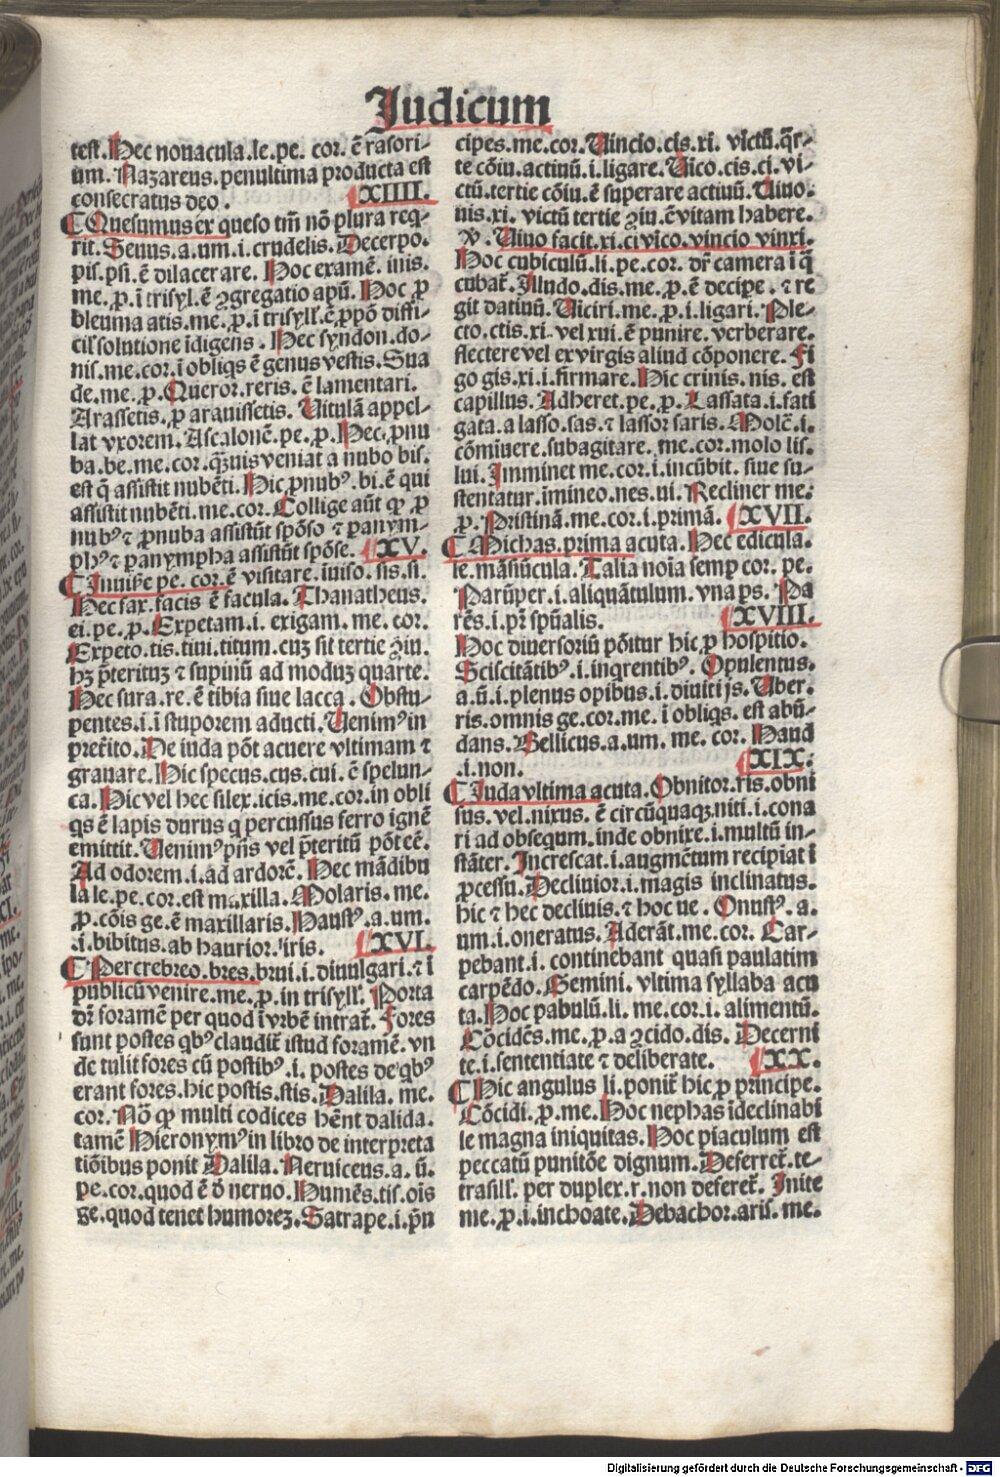 Judicum
test. Hec nouacula.le.pe. cor. ē rasori-
um. Nazareus. penultima producta est
consecratus deo . XIIII.
Quesumus ex queso tm̄ nō plura req-
rit. Seuus.a.um.i.crudelis. Decerpo.
pis.psi.ē dilacerare. Hoc examē. inis.
me.p̱.ī trisyl.ē ꝯgregatio apū. Hoc p̱
bleuma atis.me.p̱.ī trisyll̄.ē p̱pō diffi-
cil̄ solutione īdigens . Hec syndon.do-
nis.me.cor.ī obliqs ē genus vestis. Sua
de.me.p̱. Queror.reris. ē lamentari.
Arassetis.p̱ arauissetis. Uitulā appel-
lat vxorem. Ascalonē.pe.p̱. Hec.p̱nu
ba.be.me.cor.q̄̄uis veniat a nubo bis.
est q̄ assistit nubēti. Hic p̱nubꝰ.bi.ē qui
assistit nubēti.me.cor. Collige aūt ꝙ p̱
nubꝰ ⁊ p̱nuba assistūt spōso ⁊ panym-
phꝰ ⁊ panympha assistūt spōse. XV.
Inuiße pe. cor.ē visitare.īuiso.sis.si.
Hec fax.facis ē facula. Thanatheus.
ei.pe.p̱. Expetam.i. exigam. me. cor.
Expeto.tis.tiui.titum.cuꝫ sit tertie ꝯiu.
hꝫ p̄terituꝫ ⁊ supinū ad moduꝫ quarte.
Hec sura.re.ē tibia siue lacca . Obstu-
pentes.i.ī stuporem aducti. Uenimꝰ in
preteř̄ito. De iuda pōt acuere vltimam ⁊
grauare. Hic specus.cus.cui. ē spelun-
ca. Hic vel hec silex.icis.me.cor.in obli
qs ē lapis durus q̄ percussus ferro ignē
emittit. Uenimꝰ pn̄s vel p̄teritū pōt eē.
Ad odorem.i.ad ardorē. Hec mādibu
la le.pe.cor.est maxilla. Molaris.me.
p̱.cōis ge.ē maxillaris. Haustꝰ.a.um.
.i.bibitus.ab haurior.iris. XVI.
Percrebreo.bres.brui.i.diuulgari.⁊ ī
publicū venire.me.p̱.in trisyll̄. Porta
dr̄ foramē per quod ī vrbē intrat̄. Fores
sunt postes qbꝰ claudit̄ istud foramē. vn
de tulit fores cū postibꝰ.i. postes de qbꝰ
erant fores.hic postis.stis. Dalila. me.
cor. Nō ꝙ multi codices hēnt dalida.
tamē Hieronymꝰ in libro de interpreta
tiōibus ponit Dalila. Neruiceus.a. ū.
pe.cor.quod ē d̄ neruo. Humēs.tis.ois
ge.quod tenet humoreꝫ. Satrape.i.p̄n
cipes.me.cor. Uincio.cis.xi. victū.q̄r-
te cōiu.actiuū.i.ligare. Uico.cis.ci.vi-
ctū.tertie cōiu.ē superare actiuū. Uiuo.
uis.xi. victū tertie ꝯiu.ē vitam habere.
℣. Uiuo facit.xi.ci vico.vincio vinxi.
Hoc cubiculū.li.pe.cor. dr̄ camera ī q̄
cubat̄. Illudo.dis.me.p̱.ē decipe. ⁊ re
git datiuū. Uiciri.me.p̱.i.ligari. Ple-
cto.ctis.xi. vel xui.ē punire. verberare.
flectere vel ex virgis aliud cōponere. Fi
go gis.xi.i.firmare. Hic crinis. nis. est
capillus. Adheret.pe.p̱. Lassata.i.fati
gata.a lasso.sas.⁊ lassor saris. Molē.i.
cōmiuere.subagitare. me.cor.molo lis.
lui. Imminet me.cor.i.incūbit. siue su-
stentatur.imineo.nes.ui. Recliner me:
p̱. Pristinā.me.cor.i.primā. XVII.
Michas.prima acuta. Hec edicula.
le.māsiūcula. Talia noīa semp̱ cor. pe.
Parūper.i.aliquātulum. vna ps. Pa
rēs.i.pr̄ spūalis. XVIII.
Hoc diuersoriū pōitur hic p̱ hospitio.
Sciscitātibꝰ.i.inqrentibꝰ. Opulentus.
a.ū.i.plenus opibus.i.diuitijs. Uber.
ris.omnis ge.cor.me. ī obliqs. est abū-
dans. Bellicus.a.um. me. cor. Haud
.i.non. XIX:
Iuda vltima acuta. Obnitor.ris.obni
sus.vel.nixus. ē circūquaqꝫ niti.i.cona
ri ad obsequm.inde obnixe.i.multū in-
stāter. Increscat.i.augmētum recipiat ī
p̱cessu. Decliuior.i.magis inclinatus.
hic ⁊ hec decliuis.⁊ hoc ue . Onustꝰ. a.
um.i.oneratus. Aderāt.me.cor. Car-
pebant.i. continebant quasi paulatim
carpēdo. Gemini. vltima syllaba acu
ta. Hoc pabulū.li. me.cor.i.alimentū.
Cōcidēs.me.p̱.a ꝯcido.dis. Decerni
te.i.sententiate ⁊ deliberate. XX.
Hic angulus li.ponit̄ hic p̱ principe.
Cōcidi.p̱.me. Hoc nephas īdeclinabi
le magna iniquitas. Hoc piaculum est
peccatū punitōe dignum. Deferret̄.te-
trasill̄. per duplex.r.non deferet̄. Inite
me.p̱.i.inchoate. Debachor.aris. me.
Digitalisierung gefördert durch die Deutsche Forschungsgemeinschaft - DFG